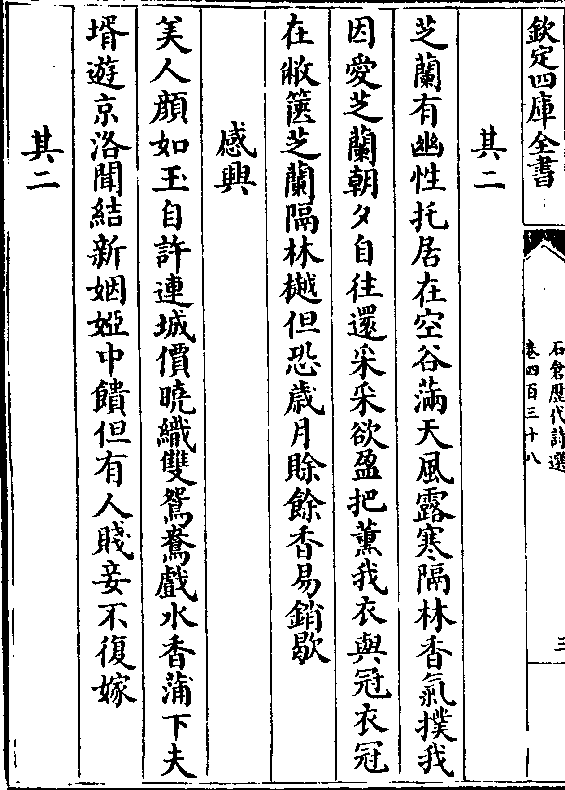 欽定四庫全書
石倉歷代詩選
卷四百三十八
三
其二
芝蘭有幽性托居在空谷滿天風露寒隔林香氣撲我
因愛芝蘭朝夕自往還采采欲盈把薰我衣與冠衣冠
在敝篋芝蘭隔林樾但恐歲月賒餘香易銷歇
感興
美人顔如玉自許連城價曉織雙鴛鴦戲水香蒲下夫
壻遊京洛聞結新姻婭中饋但有人賤妾不復嫁
其二